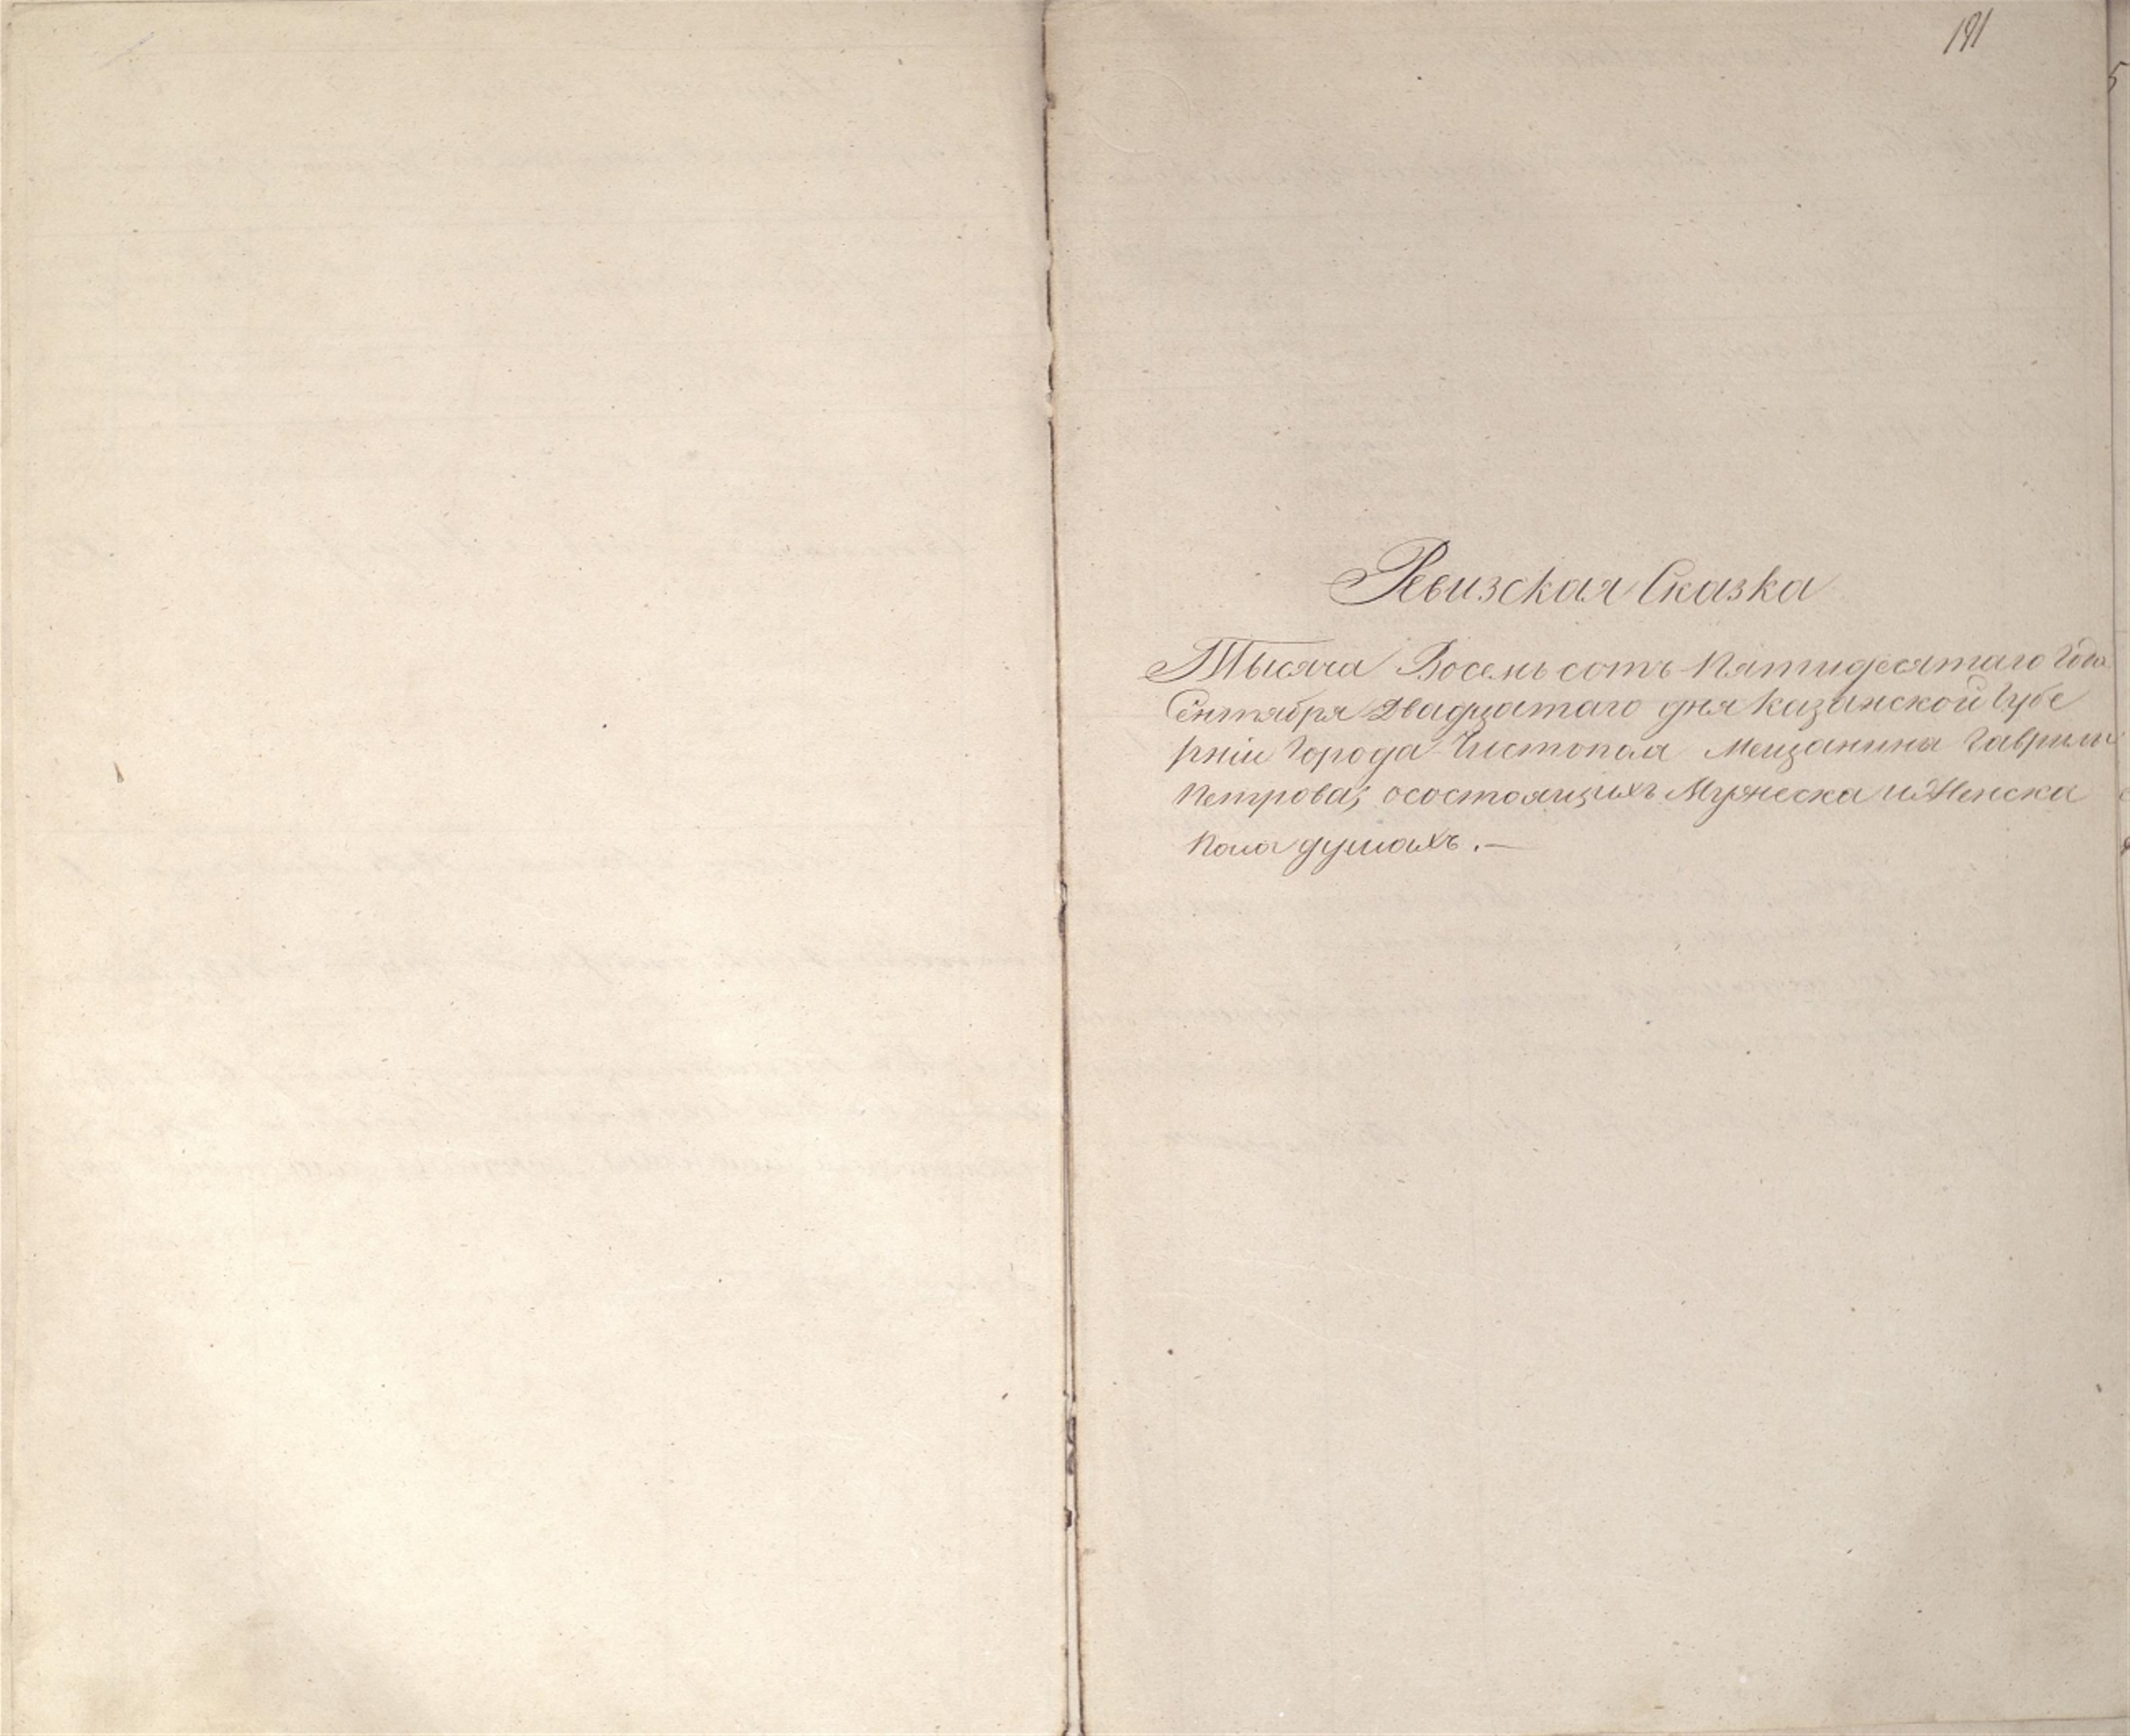 191
Ревизская Сказка
Тысяча Восемь сотъ Пятидесятаго Года
Сентября Двадцатаго дня Казанской Губе
рніи Города Чистополя Мещанина Гаврилы
Петрова; осостоящихъ Мужеска и Женска
пола душахъ.—